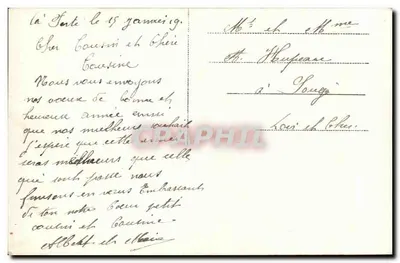 La Ferté le 15 janvier 19.
Cher Cousin et Chère
Cousine
Nous vous envoyons
nos voeux de bonne et
heureuse année ainsi
que nos meilleurs souhaits
j'espère que cette année
sera meilleurs que celle
qui sont passé nous
finisons en vous Embrassant
de tout notre Coeur petit
cousin et Cousine.
Albert et Marie
Mr et Mme
A. Hupeau
à Sougé
Loir et Cher
CPARPHIL